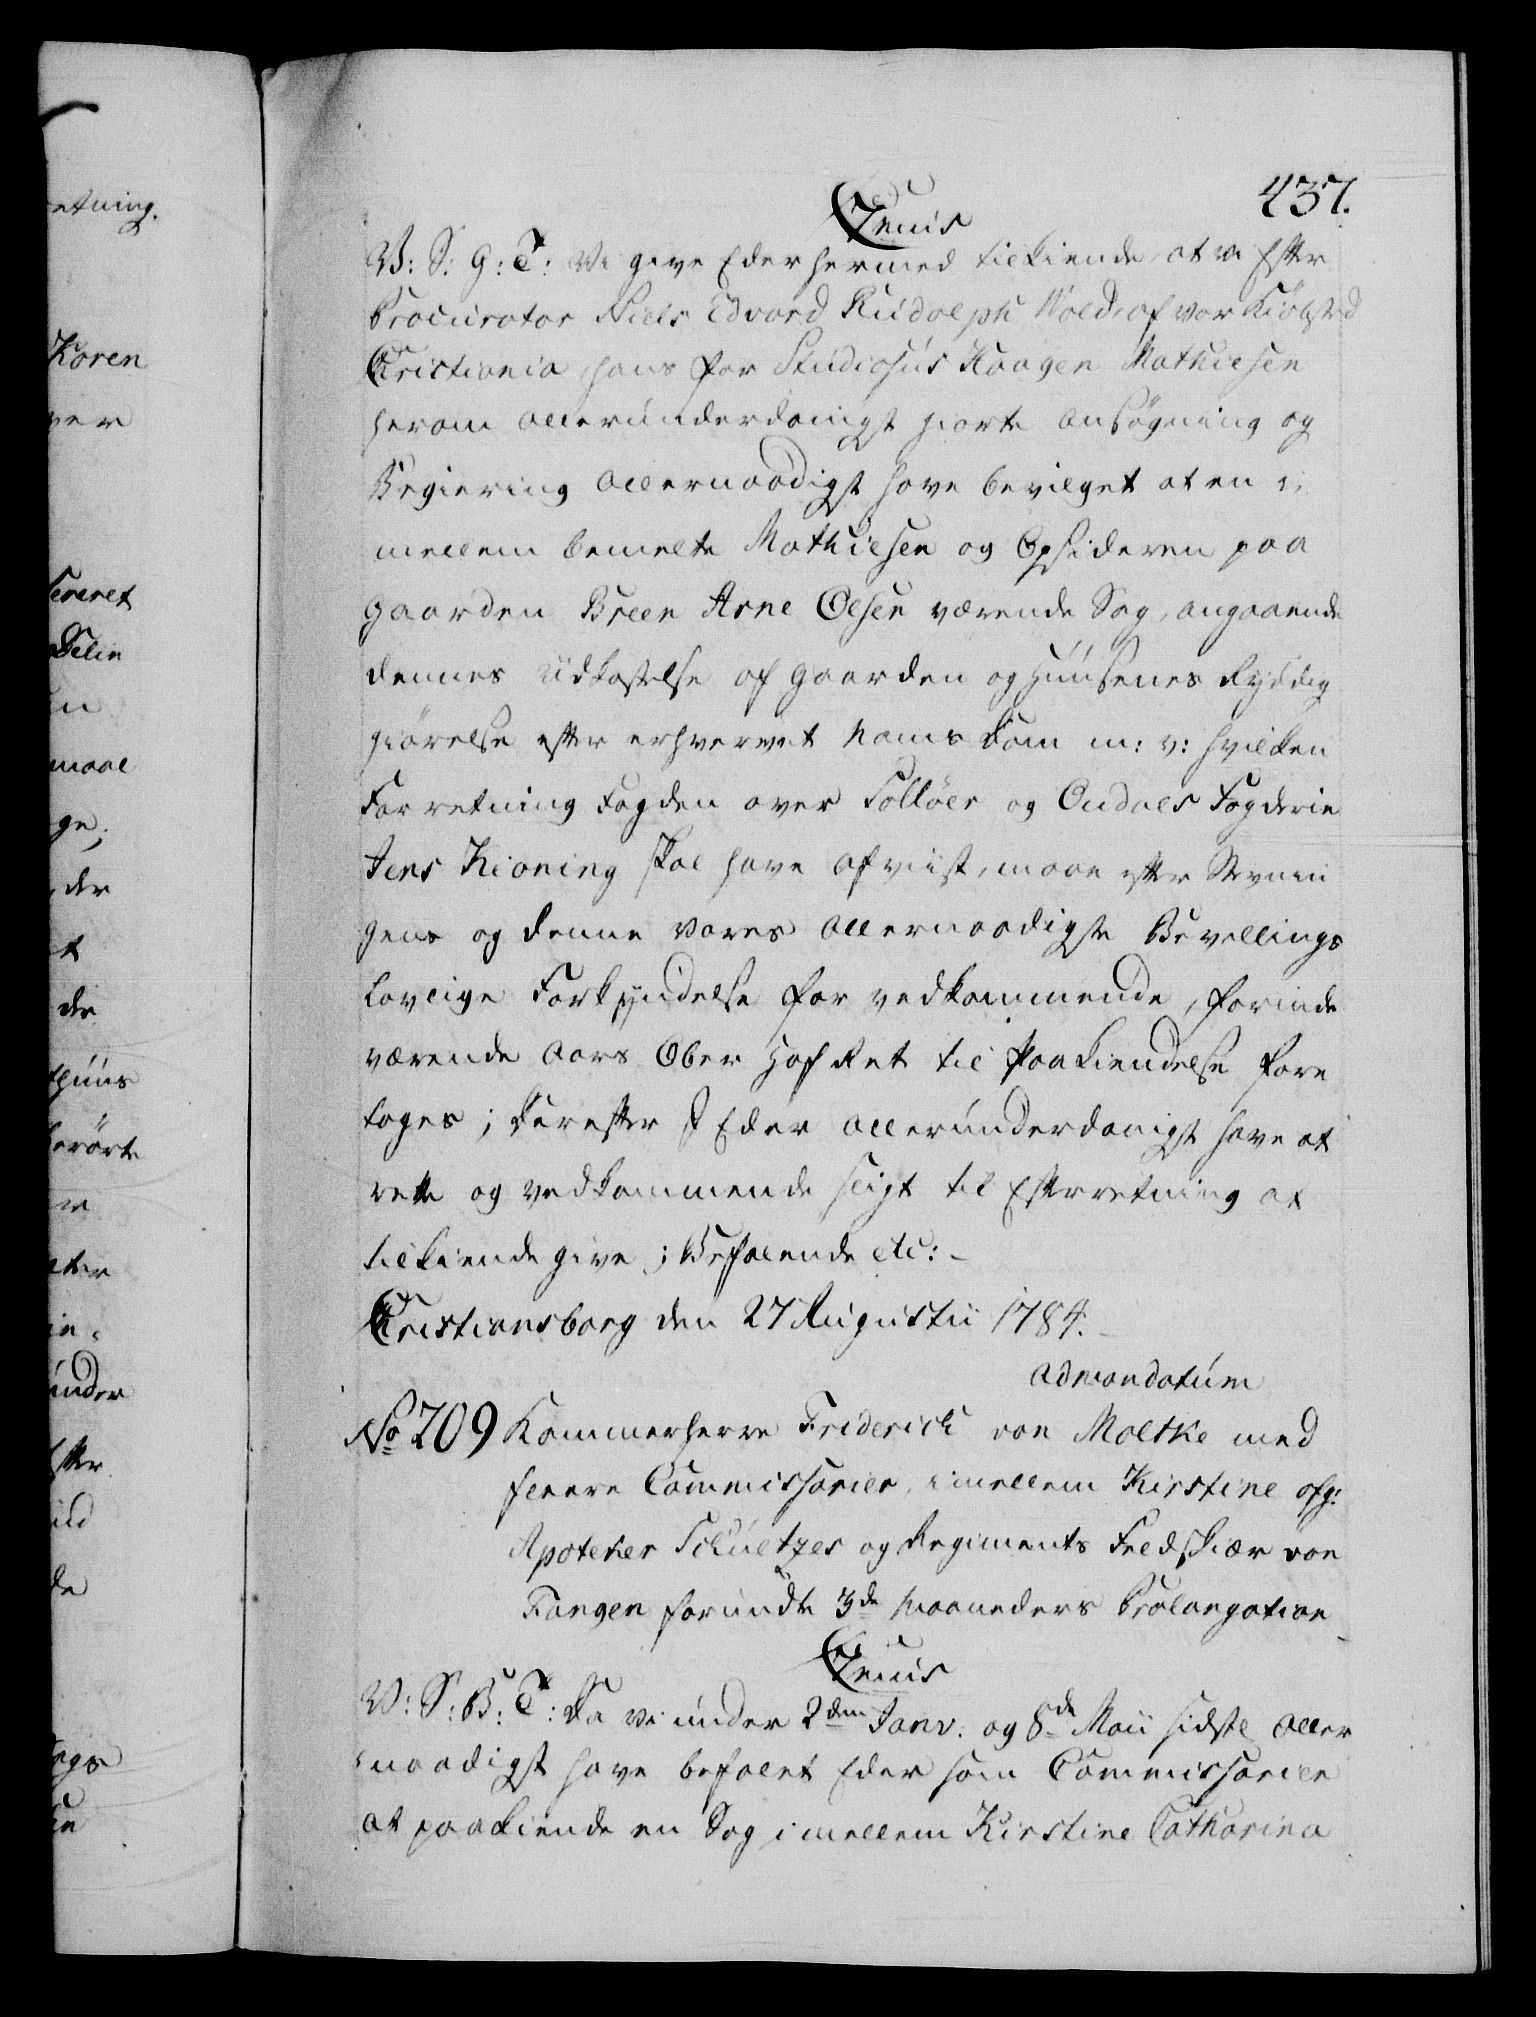 437.
C7enis
V: S: G: T: Vi give Eder hermed tilkiende, at vi Efter
Procurator Niels Edvard Rudolph Wold, af vor Kiøbsted
Christiania, hans for Studiosus Haagen Mathiesen
herom allerunderdanigst giorte ansøgning og
Begiering allernaadigst have bevilget at en i,,
mellem bemelte Mathiesen og Opsideren paa
Gaarden Breen Arne Olsen værende Sag, angaaende
dennes Udkastelse af Gaarden og Huusenes Ryddig
giørelse efter erhvervet Nams Dom m: v: hvilken
Forretning Fogden over Folloer og Ondals Fogderie
Jens Kioning skal have afviist, maae efter Stevnin
gens og denne vores allernaadigste Bevillings
Lovlige Forkyndelse for vedkommende, for inde
værende Aars Ober Hof Ret til Paakiendelse fore
tages; Derefter I Eder allerunderdanigst have at
rette og vedkommende sligt til Efterretning at
tilkiende give; Befalende etc:
Christiansborg den 27 Augustii 1784.
admandatum
No 209 Kammerherre Friderich von Moltke med
fleere Commissarier, imellem Kirstine afg:
Apoteker Schultzes og Regiments Feldskiær von
Fangen forundt 3de Maaneders Prolongation
C7enis
V: S: B: T: Da vi under 2den Janv. og 8de Maii sidstl aller
naadigst have befalet Eder som Commissarier
at paakiende en Sag imellem Kirstine Catharina
etning.
Koren
ver
maal
ge;
der
t
de
huus
berørte
under
efter
de